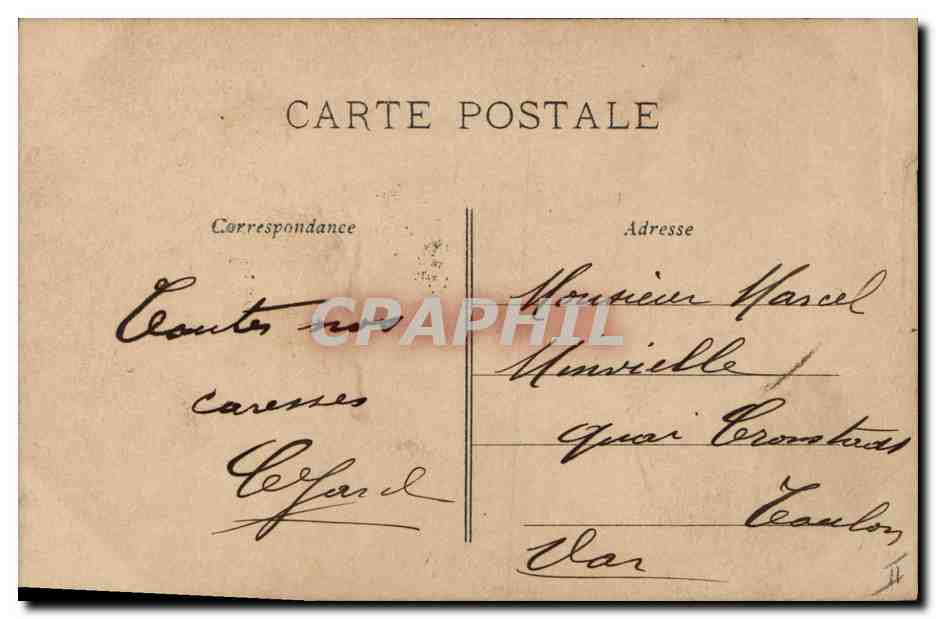 CARTE POSTALE
Correspondance
Toutes nos
caresses
Adresse
Monsieur Marcel
Minvielle
quai Cronstadt
Toulon
Var
CPAPHIL